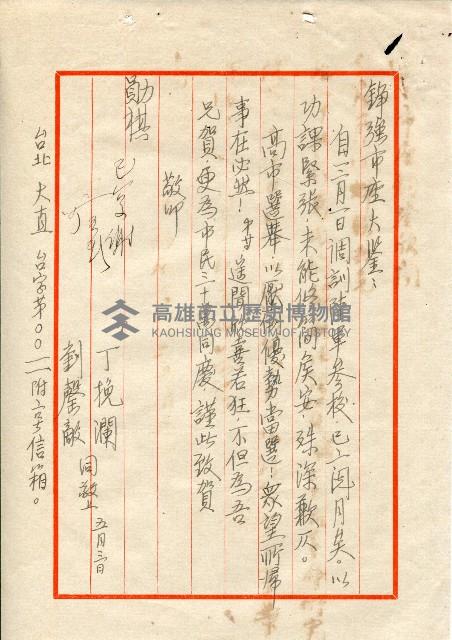 錦強市座大鑒：
自一二月一日調訓陸軍參校，已二閱月矣。以
功課緊張，未能偷閒矣安，殊深歉仄。
高市選舉，以壓優勢當選！眾望所歸
事在必然！弟廿遙聞欣喜若狂，不但為吾
兄賀，更為市民三十萬同慶，謹此致賀
敬叩
勛祺
已复謝
丁挽瀾
劉馨敵 同敬上 五月三日
台北 大直 台字第00一一附二號信箱。
高雄市立歷史博物館
KAOHSIUNG MUSEUM OF HISTORY